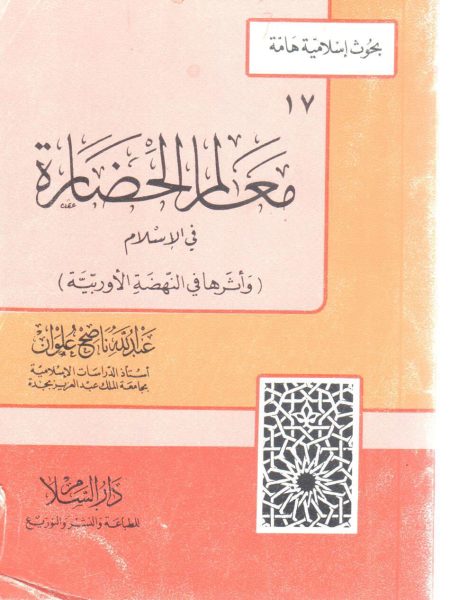 بحُوث إسْلاميّة هَامّة
١٧
مَعَالم الحَضَارَة
في الإسْلام
(وَأثَرهَا في النّهضَةِ الأوربّيَّة)
عبدالله ناصح علوان
أستاذ الدّراسَات الإسْلاميّة
بجَامعَة الملك عبد العزيز بجدّة
دَارُ السَّلام
للطبَاعَة وَالنشْر وَالتوزيع